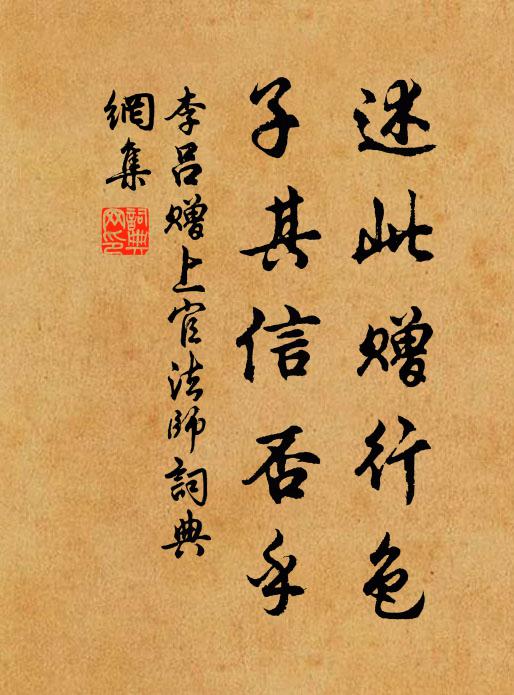 述此赠行色
子其信否乎
李吕赠上官法師詞典
網集
詞典
网印